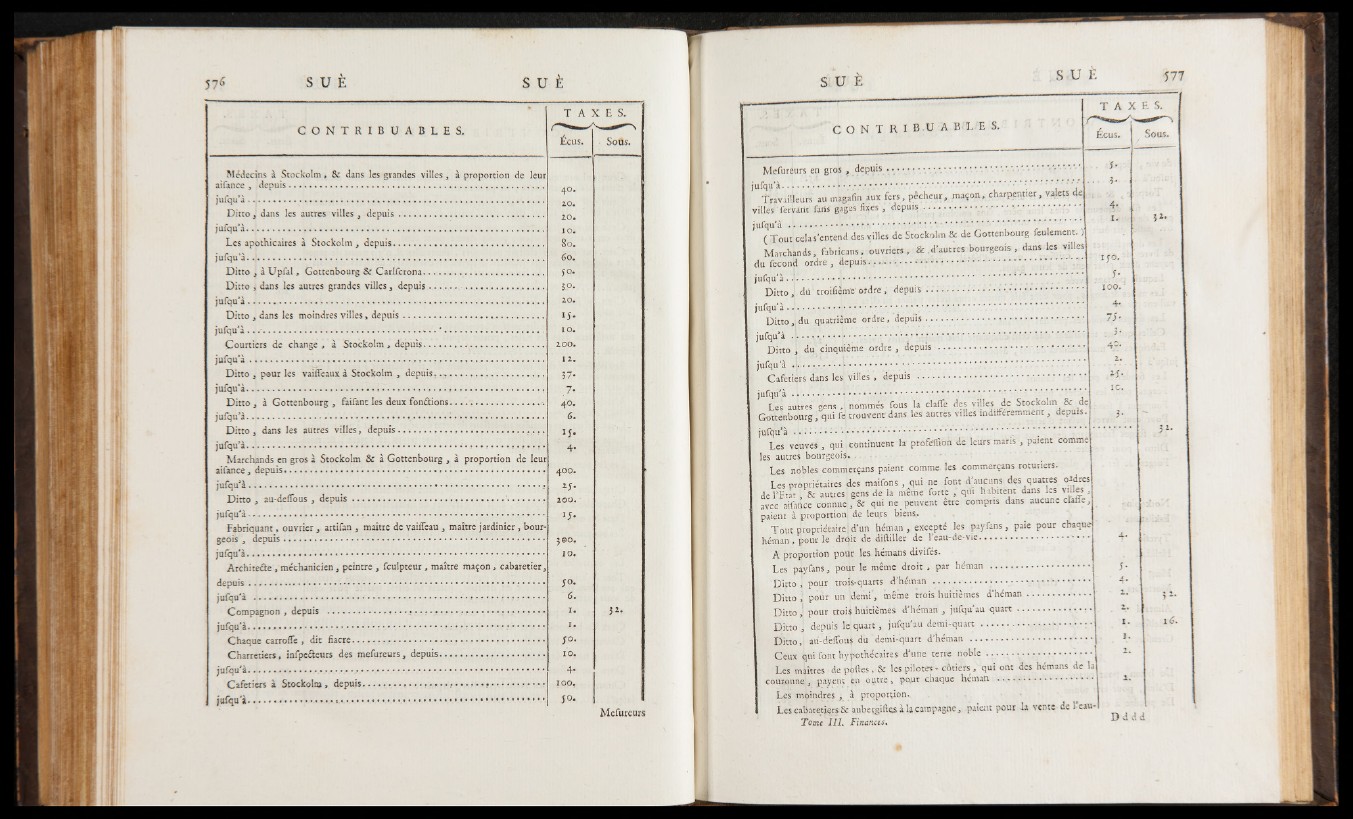 576 SUÈ SUÈ
CONTRIBUABLES.
TAXES.
Écus. Sous.
Médecins à Stockolm, & dans les grandes villes, à proportion de leur
aisance, depuis 40.
jusqu'à 20.
Ditto, dans les autres villes, depuis 20.
jusqu'à 10.
Les apothicaires à Stockolm, depuis 80.
jusqu'à 60.
Ditto, à Upsal, Gottenbourg & Carlscrona 50.
Ditto, dans les autres grandes villes, depuis 30.
jusqu'à 20.
Ditto, dans les moindres villes, depuis 15.
jusqu'à 10.
Courtiers de change, à Stockolm, depuis 200.
jusqu'à 12.
Ditto, pour les vaisseaux à Stockolm, depuis 37.
jusqu'à 7.
Ditto, à Gottenbourg, faisant les deux fonctions 40.
jusqu'à 6.
Ditto, dans les autres villes, depuis 15.
jusqu'à 4.
Marchands en gros à Stockolm & à Gottenbourg, à proportion de leur
aisance, depuis 400.
jusqu'à 25.
Ditto, au-dessous, depuis 200.
jusqu'à 15.
Fabriquant, ouvrier, artisan, maître de vaisseau, maître jardinier, bour-
geois, depuis 300.
jusqu'à 10.
Architecte, méchanicien, peintre, sculpteur, maître maçon, cabaretier,
depuis 50.
jusqu'à 6.
Compagnon, depuis 1. 32.
jusqu'à 1.
Chaque carrosse, dit fiacre 50.
Charretiers, inspecteurs des mesureurs, depuis 10.
jusqu'à 4.
Cafetiers à Stockolm, depuis 100.
jusqu'à 50.
Mesureurs
SUÈ SUÈ 577
CONTRIBUABLES.
TAXES.
Écus. Sous.
Mesureurs en gros, depuis 5.
jusqu'à 3.
Travailleurs au magasin aux fers, pêcheur, maçon, charpentier, valets de
villes servant sans gages fixes, depuis 4.
jusqu'à 1. 32.
(Tout cela s'entend des villes de Stockolm & de Gottenbourg seulement.)
Marchands, fabricans, ouvriers, & d'autres bourgeois, dans les villes
du second ordre, depuis 150.
jusqu'à 5.
Ditto, du troisième ordre, depuis 100.
jusqu'à 4.
Ditto, du quatrième ordre, depuis 75.
jusqu'à 3.
Ditto, du cinquième ordre, depuis 40.
jusqu'à 2.
Cafetiers dans les villes, depuis 25.
jusqu'à 10.
Les autres gens, nommés sous la classe des villes de Stockolm & de
Gottenbourg, qui se trouvent dans les autres villes indifféremment, depuis 3.
jusqu'à 32.
Les veuves, qui continuent la profession de leurs maris, paient comme
les autres bourgeois.
Les nobles commerçans paient comme les commerçans roturiers.
Les propriétaires des maisons, qui ne sont d'aucuns des quatres ordres
de l'Etat, & autres gens de la même sorte, qui habitent dans les villes,
avec aisance connue, & qui ne peuvent être compris dans aucune classe,
paient à proportion de leurs biens.
Tout propriétaire d'un héman, excepté les paysans, paie pour chaque
héman, pour le droit de distiller de l'eau-de-vie 4.
A proportion pour les hémans divisés.
Les paysans, pour le même droit, par héman 5.
Ditto, pour trois-quarts d'héman 4.
Ditto, pour un demi, même trois huitièmes d'héman 2. 32.
Ditto, pour trois huitièmes d'héman, jusqu'au quart 2.
Ditto, depuis le quart, jusqu'au demi-quart 1. 16.
Ditto, au-dessous du demi-quart d'héman 1.
Ceux qui sont hypothécaires d'une terre noble 2.
Les maîtres de postes, & les pilotes-côtiers, qui ont des hémans de la
couronne, payent en outre, pour chaque héman 2.
Les moindres, à proportion.
Les cabaretiers & aubergistes à la campagne, paient pour la vente de l'eau-
Tome III. Finances. Dddd